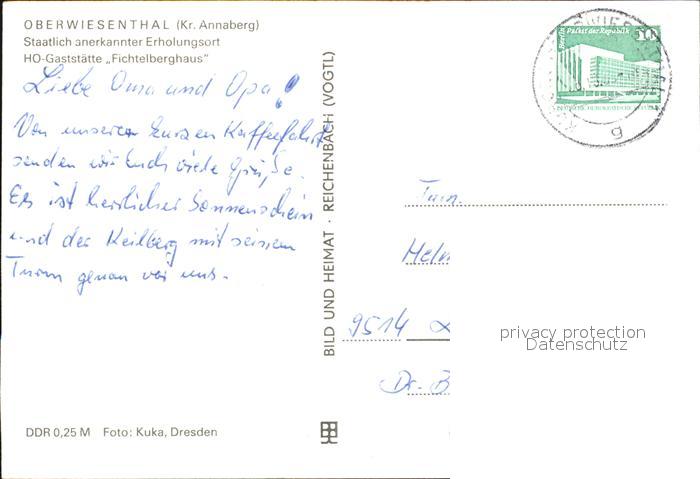 OBERWIESENTHAL (Kr. Annaberg)
Staatlich anerkannter Erholungsort
HO-Gaststätte „Fichtelberghaus"
Liebe Oma und Opa!
Von unserer kurzen Kaffeefahrt
senden wir Euch viele Grüße.
Es ist herrlicher Sonnenschein
und der Keilberg mit seinem
Turm genau vor uns.
DDR 0,25 M Foto: Kuka, Dresden
BILD UND HEIMAT REICHENBACH (VOGTL)
Berlin Palast der Republik
10
DEUTSCHE DEMOKRATISCHE
g
Fam.
Heln
9514
Dr. B
privacy protection
Datenschutz